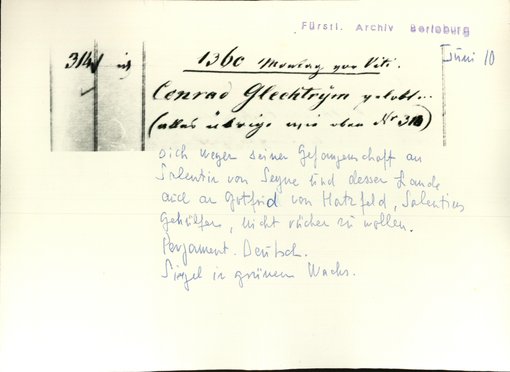 Fürstl. Archiv Berleburg
Juni 10
314
1360 Montag vor Viti.
Conrad Glechtrym gelobt
(alles übrige wie oben Nr 313)
sich wegen seiner Gefangenschaft an
Salentin von Seyne und dessen Lande
auch an Gotfrid von Hatzfeld, Salentins
Gehülfen, nicht rächen zu wollen.
Pergament. Deutsch.
Siegel in grünem Wachs.